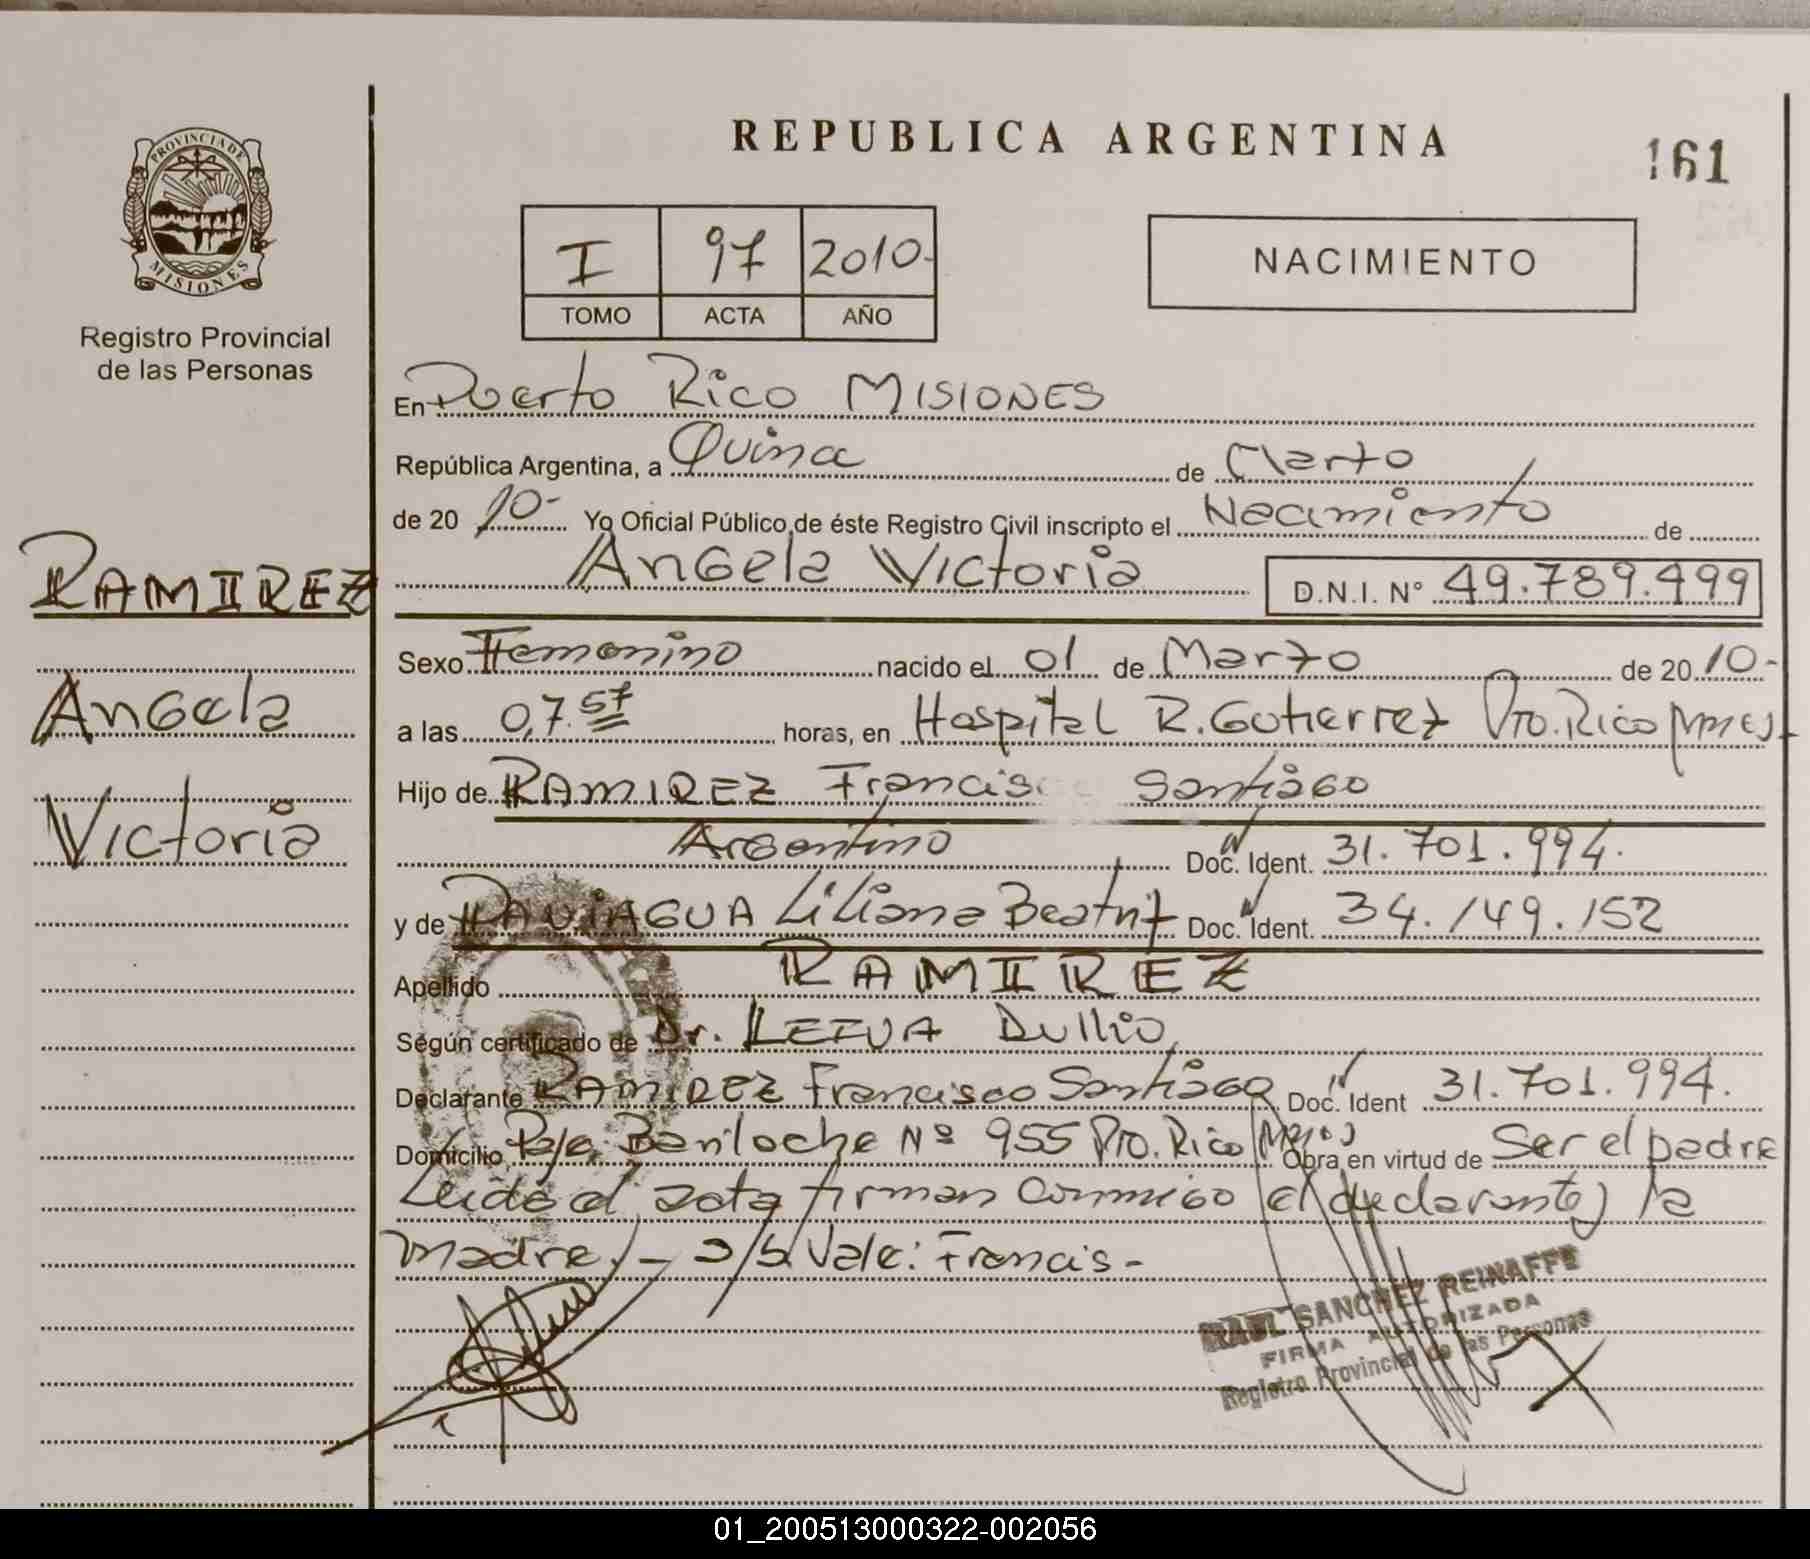 PROVINCIA DE
MISIONES
Registro Provincial
de las Personas
RAMIREZ
Angela
Victoria
REPUBLICA ARGENTINA
161
I 97 2010-
TOMO ACTA AÑO
NACIMIENTO
En Puerto Rico MISIONES
República Argentina, a Quince de Marzo
de 20 10- Yo Oficial Público de éste Registro Civil inscripto el Nacimiento de
Angela Victoria D.N.I. N° 49.789.499
Sexo Femenino nacido el 01 de Marzo de 20 10-
a las 07.57 horas, en Hospital R. Gutierrez Pto. Rico Mnes.
Hijo de RAMIREZ Francis Santiago
Argentino Doc. Ident. 31.701.994.
y de PANIAGUA Liliana Beatriz Doc. Ident. 34.149.152
Apellido RAMIREZ
Según certificado de Dr. LEIVA Dullio
Declarante RAMIREZ Francisco Santiago Doc. Ident 31.701.994.
Domicilio Pje. Bariloche Nº 955 Pto. Rico Mnes Obra en virtud de Ser el padre
Leida el acta firman conmigo el declarante y la
madre.- s/b Vale: Francis-
RAUL SANCHEZ REINAFFE
FIRMA AUTORIZADA
Registro Provincial de las Personas
01_200513000322-002056